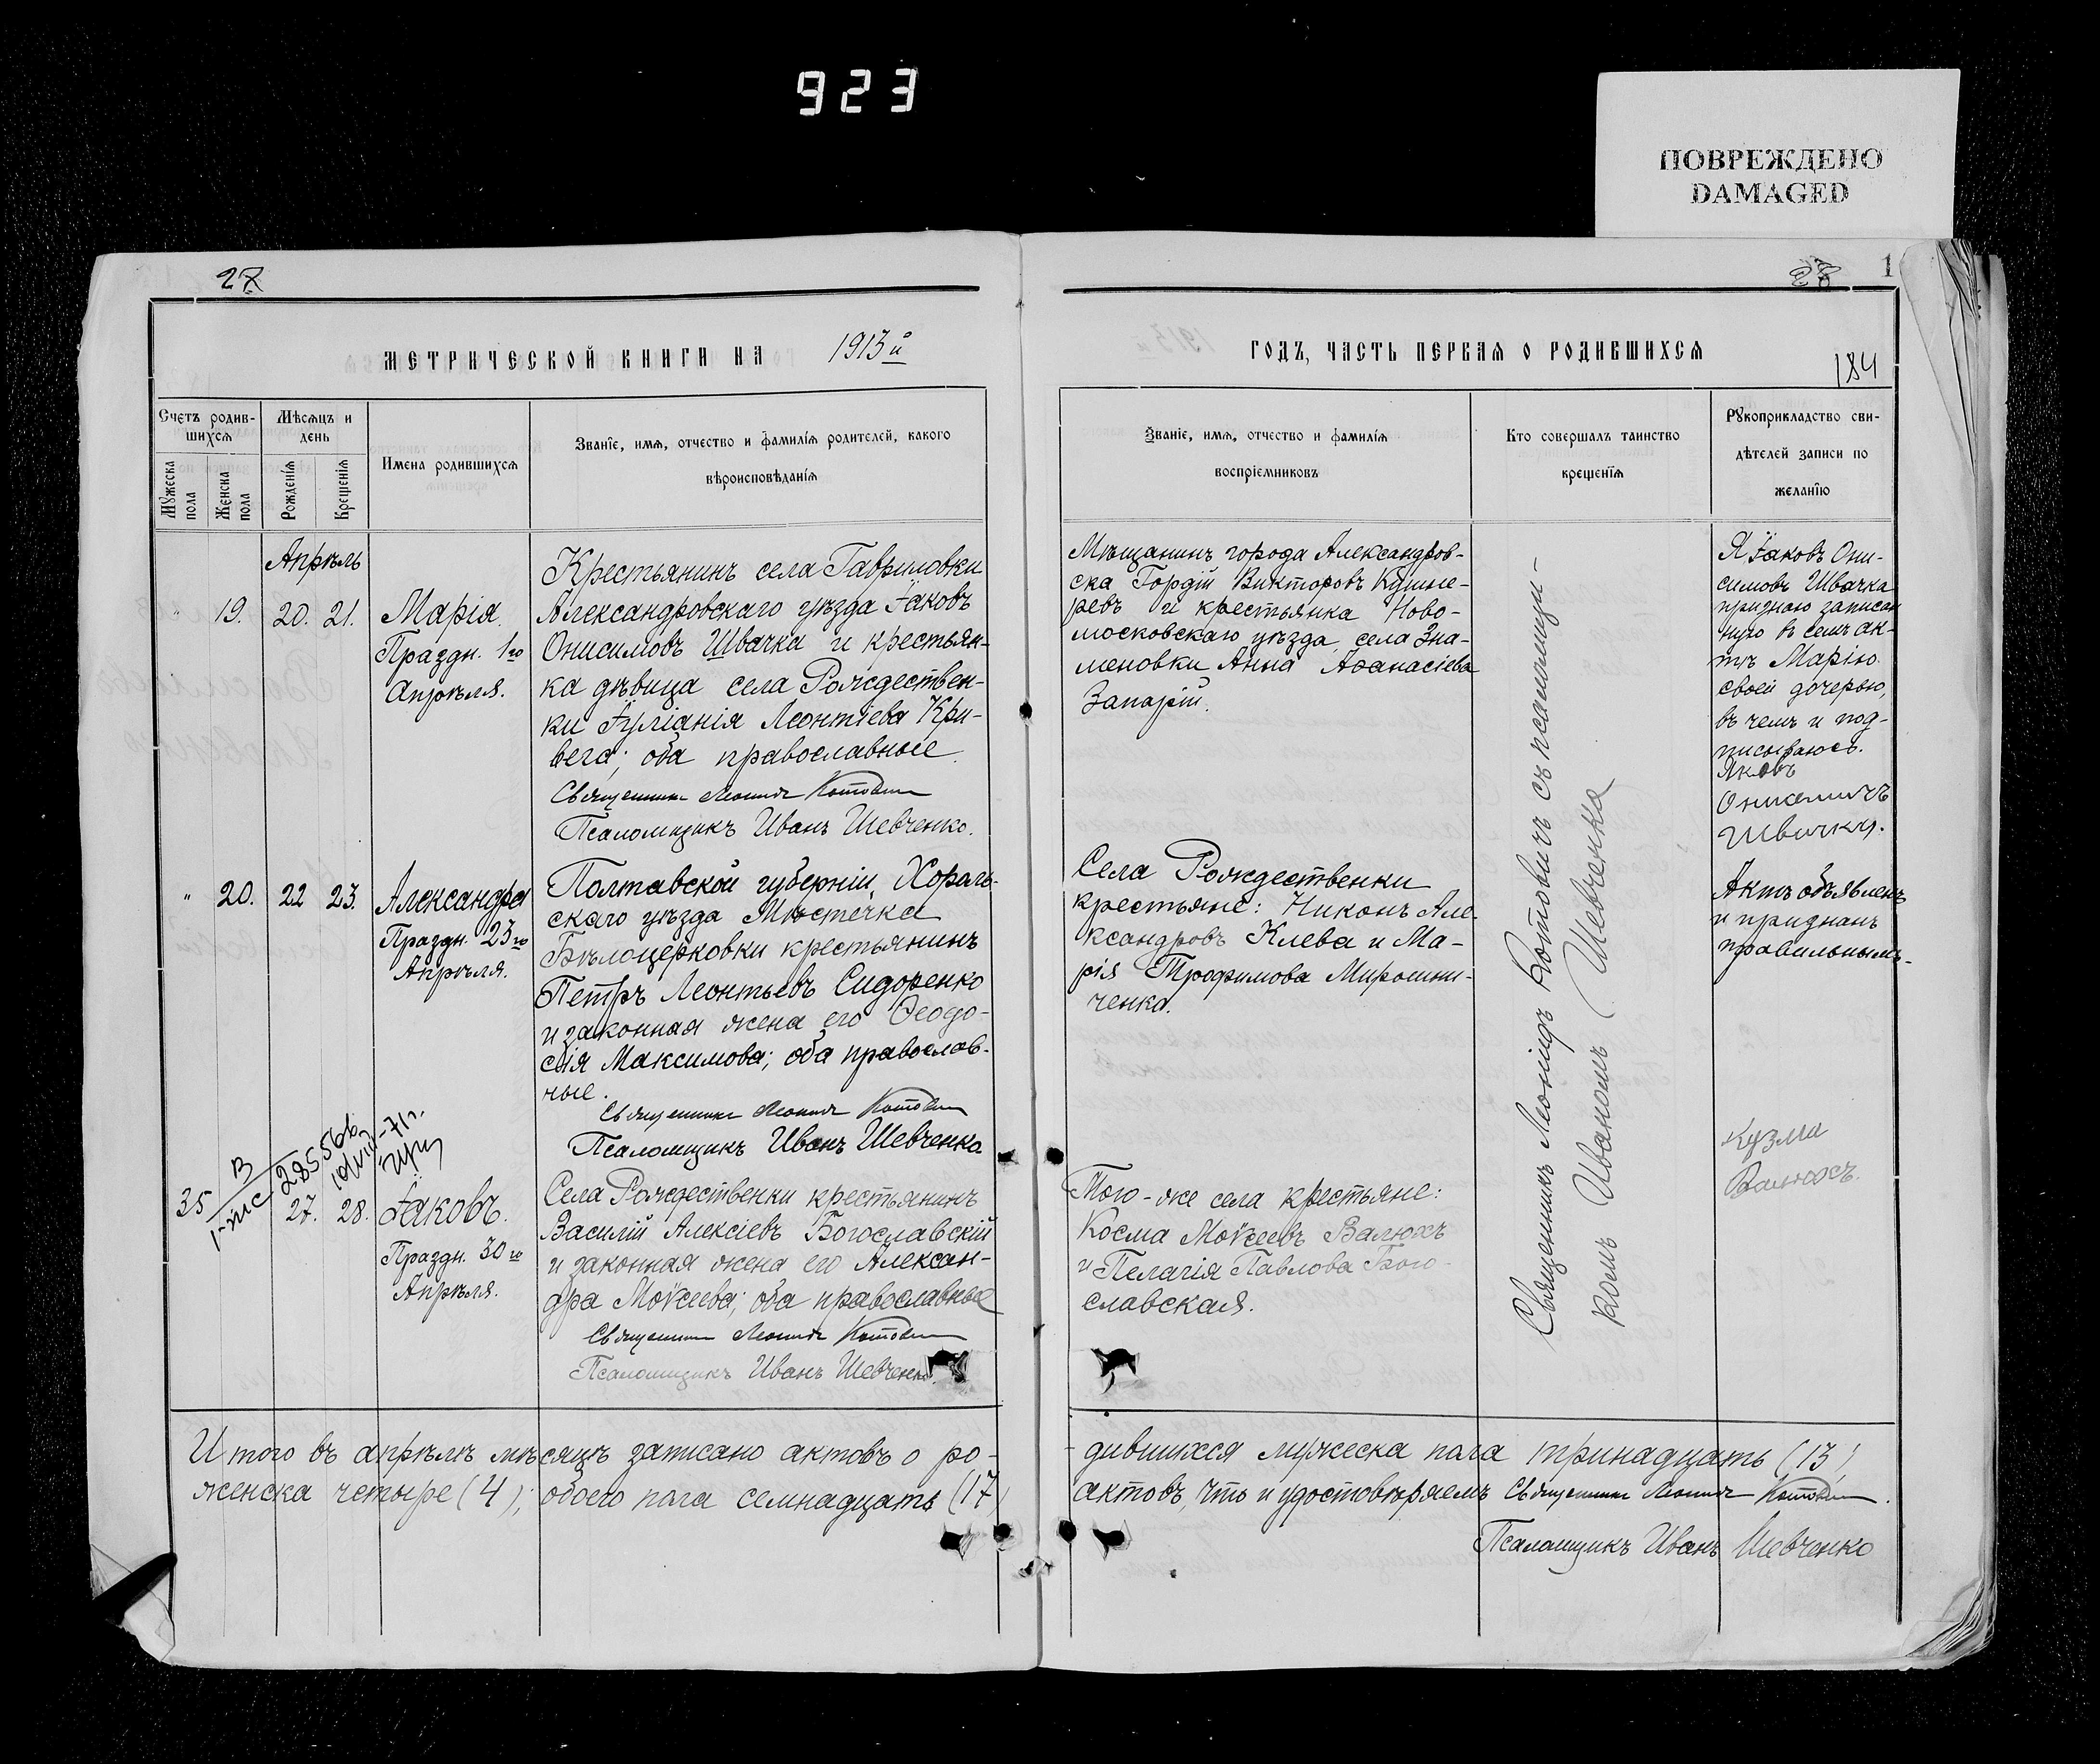 923
ПОВРЕЖДЕНО
DAMAGED
27
28
1
МЕТРИЧЕСКОЙ КНИГИ НА 1913й
ГОДЪ, ЧАСТЬ ПЕРВАЯ О РОДИВШИХСЯ
184
Счетъ родив-
шихся
Мужеска пола
Женска пола
Мѣсяцъ и
день
Рожденія
Крещенія
Имена родившихся
Званіе, имя, отчество и фамилія родителей, какого
вѣроисповѣданія
Званіе, имя, отчество и фамилія
воспріемниковъ
Кто совершалъ таинство
крещенія
Рукоприкладство сви-
дѣтелей записи по
желанію
Апрѣль
" 19. 20. 21.
Марія.
Праздн. 1го
Апрѣля.
Крестьянинъ села Гавриловки
Александровскаго уѣзда Іаковъ
Онисимовъ Швачка и крестьян-
ка дѣвица села Рождествен-
ки Іуліанія Леонтіева Кри-
вега; оба православные.
Священникъ Леонидъ Котовичъ
Псаломщикъ Иванъ Шевченко.
Мѣщанинъ города Александров-
ска Гордій Викторовъ Кушне-
ревъ и крестьянка Ново-
московскаго уѣзда, села Зна-
меновки Анна Аѳанасіева
Запарій.
Я Іаковъ Они-
симовъ Швачка
признаю записан
ную въ семъ ак-
тѣ Марію
своей дочерью,
въ чемъ и под-
писываюсь.
Яковъ
Онисимичъ
Швачка.
" 20. 22 23.
Александра
Праздн. 23го
Апрѣля.
Полтавской губерніи, Хороль-
скаго уѣзда Мѣстечка
Бѣлоцерковки крестьянинъ
Петръ Леонтьевъ Сидоренко
и законная жена его Ѳеодо-
сія Максимова; оба православ-
ные.
Священникъ Леонидъ Котовичъ
Псаломщикъ Иванъ Шевченко
Села Рождественки
крестьяне: Никонъ Але-
ксандровъ Клева и Ма-
рія Трофимова Мирошни-
ченка.
Актъ объявленъ
и признанъ
правильнымъ.
35 27. 28.
285566
Іаковъ.
Праздн. 30го
Апрѣля.
Села Рождественки крестьянинъ
Василій Алексіевъ Богославскій
и законная жена его Алексан-
дра Моѵсеева; оба православные
Священникъ Леонидъ Котовичъ
Псаломщикъ Иванъ Шевченко.
Того-же села крестьяне:
Косма Моѵсеевъ Валюхъ
и Пелагія Павлова Бого-
славская.
Кузма
Валюхъ.
Священникъ Леонидъ Котовичъ съ псаломщи-
комъ Иваномъ Шевченка
Итого въ апрѣлѣ мѣсяцѣ записано актовъ о ро-
дившихся мужеска пола тринадцать (13)
женска четыре (4); обоего пола семнадцать (17)
актовъ, что и удостовѣряемъ Священникъ Леонидъ Котовичъ.
Псаломщикъ Иванъ Шевченко